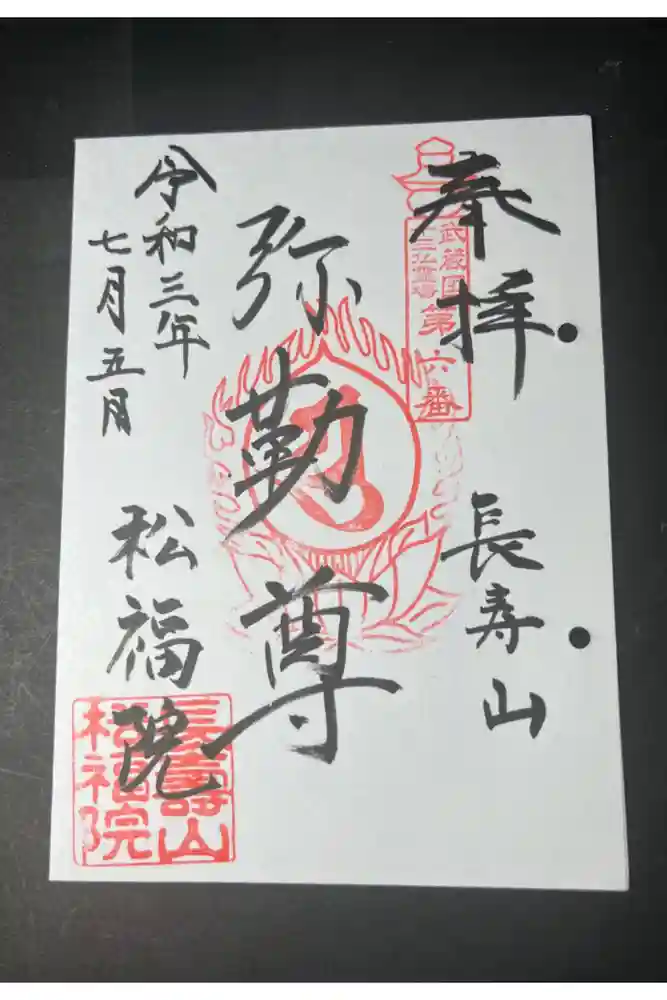 奉拝
武蔵国
十三仏霊場
第六番
長寿山
弥勒尊
令和三年
七月五日
松福院
長壽山
松福院